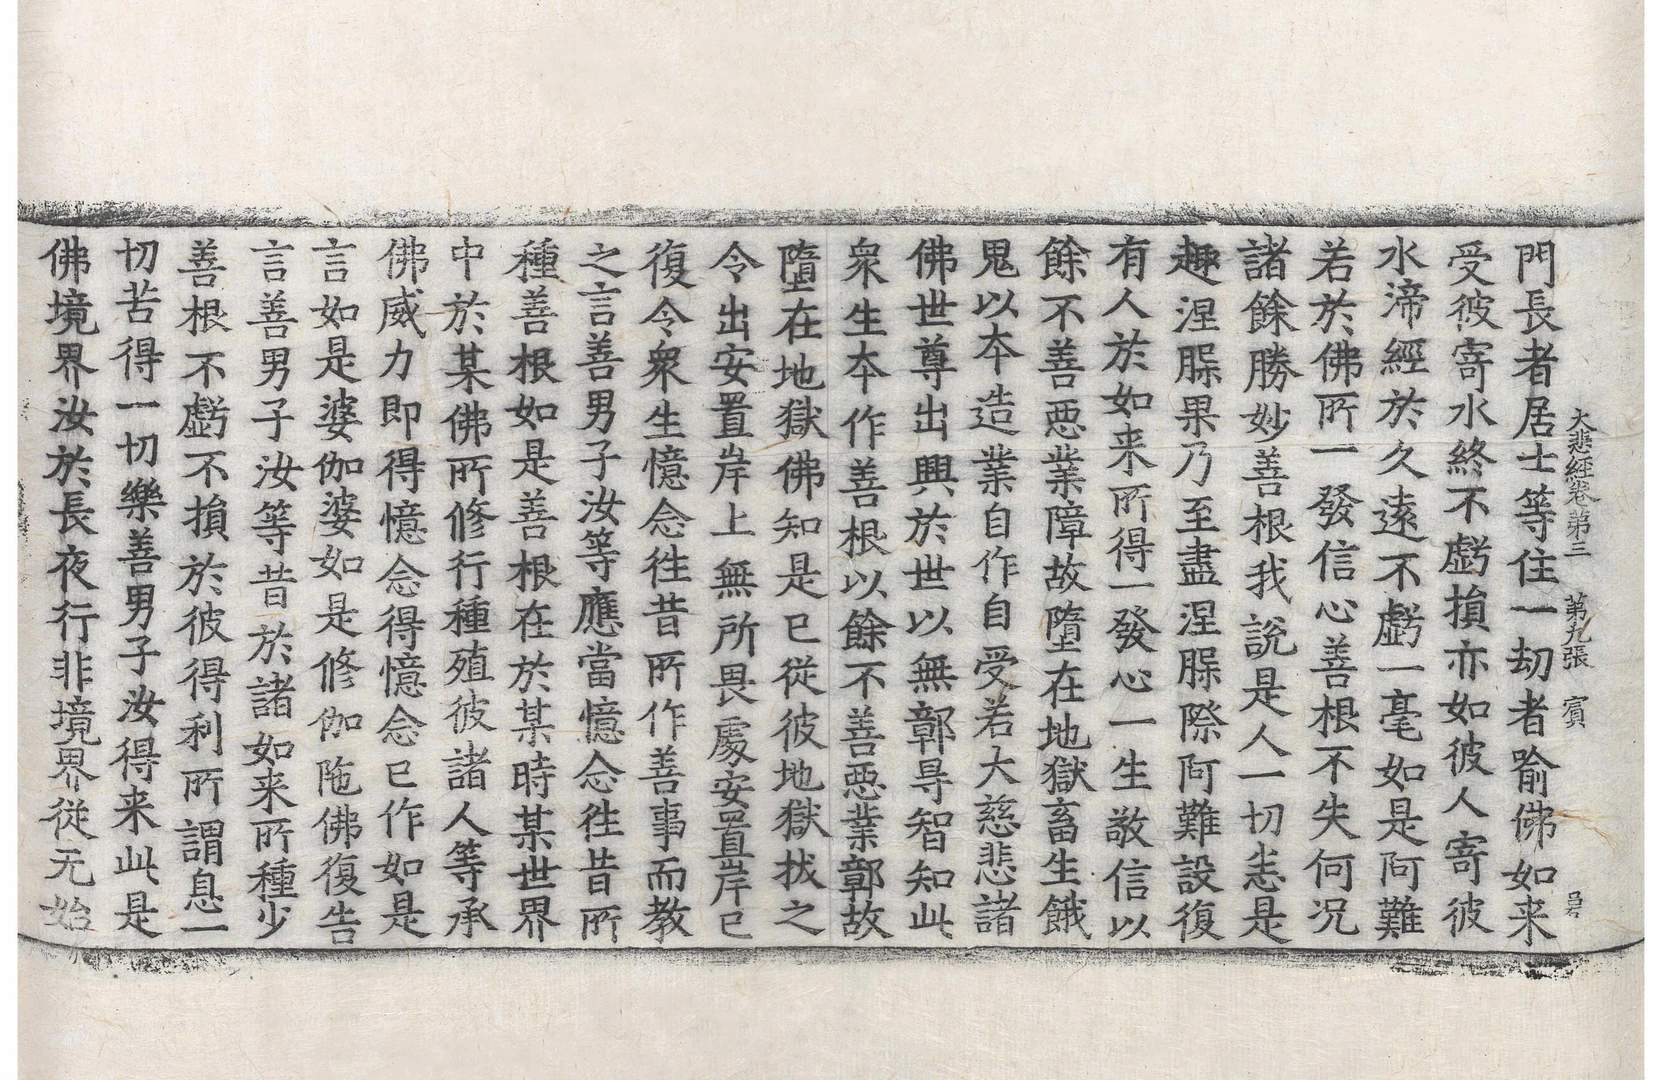 大悲經卷第三 第九張 賓
門長者居士等住一劫者喻佛如来
受彼寄水終不虧損亦如彼人寄彼
水渧經於久遠不虧一毫如是阿難
若於佛所一發信心善根不失何況
諸餘勝妙善根我說是人一切恙是
趣涅槃果乃至盡涅槃際阿難設復
有人於如来所得一發心一生敬信以
餘不善惡業障故墮在地獄畜生餓
鬼以夲造業自作自受若大慈悲諸
佛世尊出興於世以無鄣㝵智知此
衆生夲作善根以餘不善惡業鄣故
墮在地獄佛知是已從彼地獄拔之
令出安置岸上無所畏處安置岸已
復令衆生憶念徃昔所作善事而教
之言善男子汝等應當憶念徃昔所
種善根如是善根在於某時某世界
中於某佛所修行種殖彼諸人等承
佛威力即得憶念得憶念已作如是
言如是婆伽婆如是修伽陁佛復告
言善男子汝等昔於諸如来所種少
善根不虧不損於彼得利所謂息一
切苦得一切樂善男子汝得来此是
佛境界汝於長夜行非境界從无始